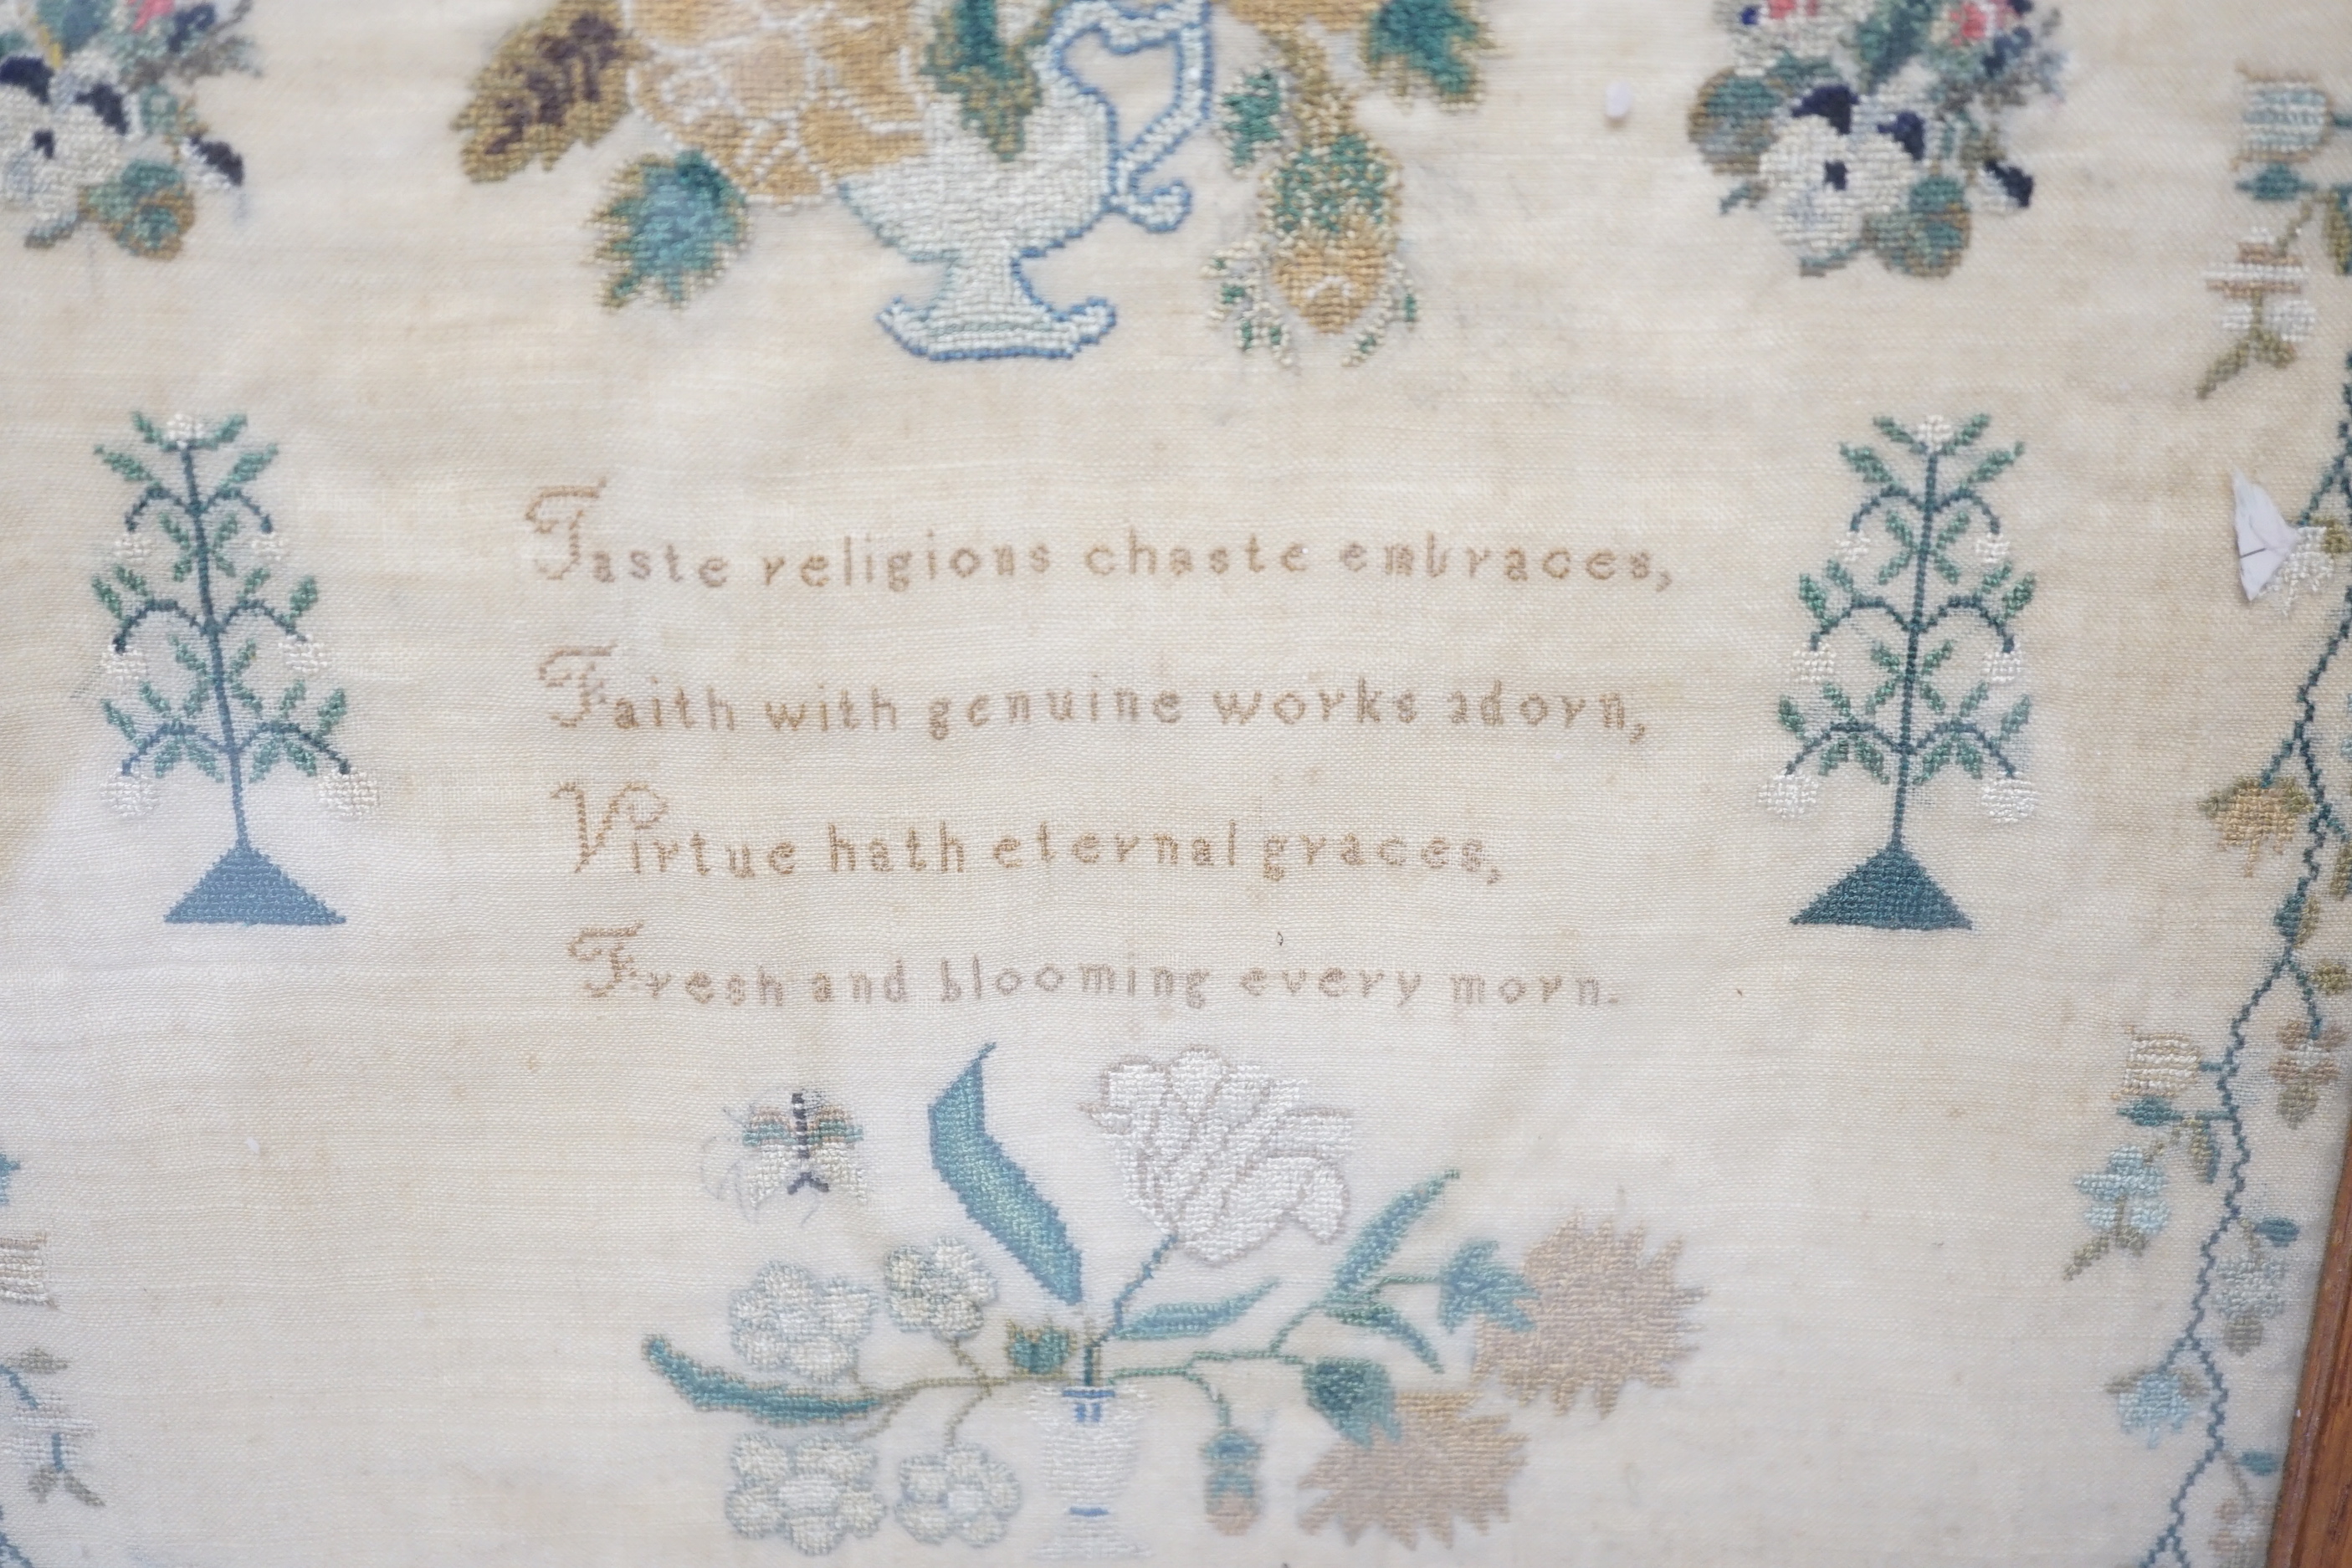 Taste religions chaste embraces,
Faith with genuine works adorn,
Virtue hath eternal graces,
Fresh and blooming every morn.